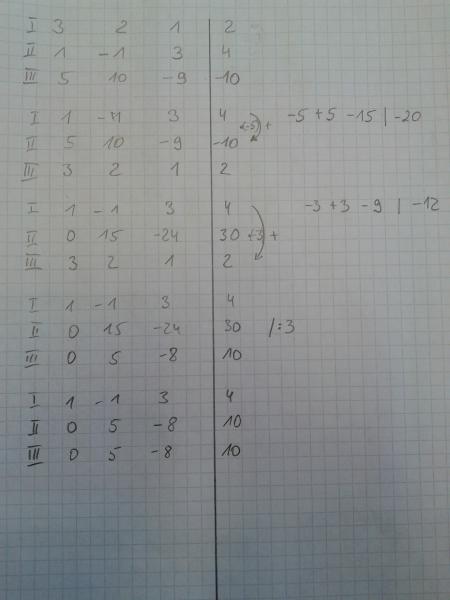 I 3 2 1 | 2
II 1 -1 3 | 4
III 5 10 -9 | -10
I 1 -1 3 | 4 ·(-5) + -5 +5 -15 | -20
II 5 10 -9 | -10
III 3 2 1 | 2
I 1 -1 3 | 4 -3 +3 -9 | -12
II 0 15 -24 | 30 ·(-3) +
III 3 2 1 | 2
I 1 -1 3 | 4
II 0 15 -24 | 30 /:3
III 0 5 -8 | 10
I 1 -1 3 | 4
II 0 5 -8 | 10
III 0 5 -8 | 10